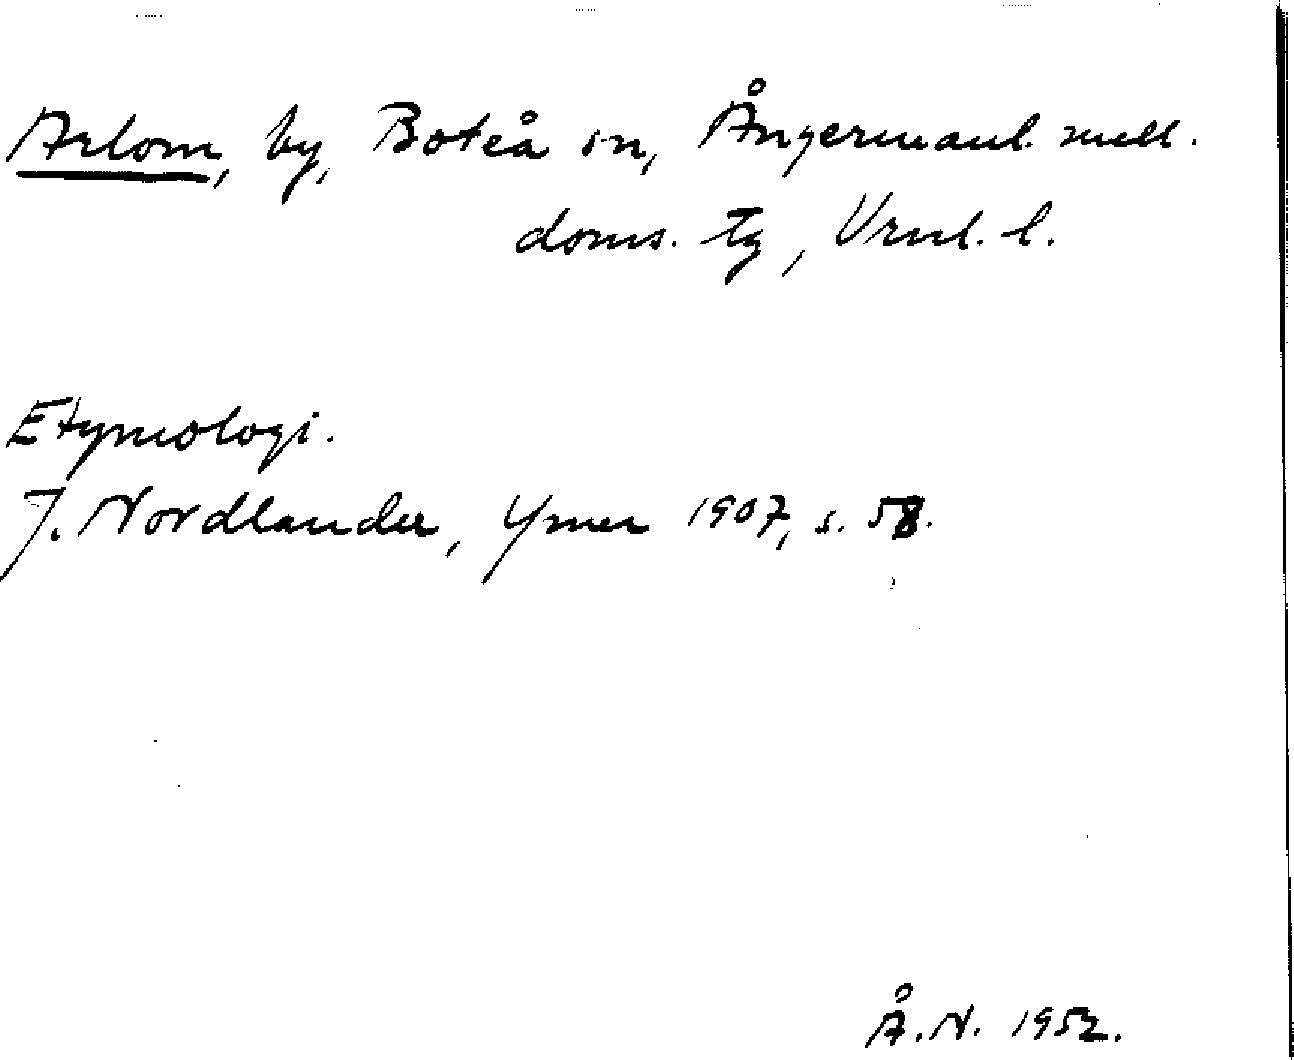 Arlom, by, Boteå sn, Ångermanl. mell.
doms. tg, Vrnl. l.
Etymologi.
J. Nordlander, Ymer 1907, s. 58.
Å.N. 1952.